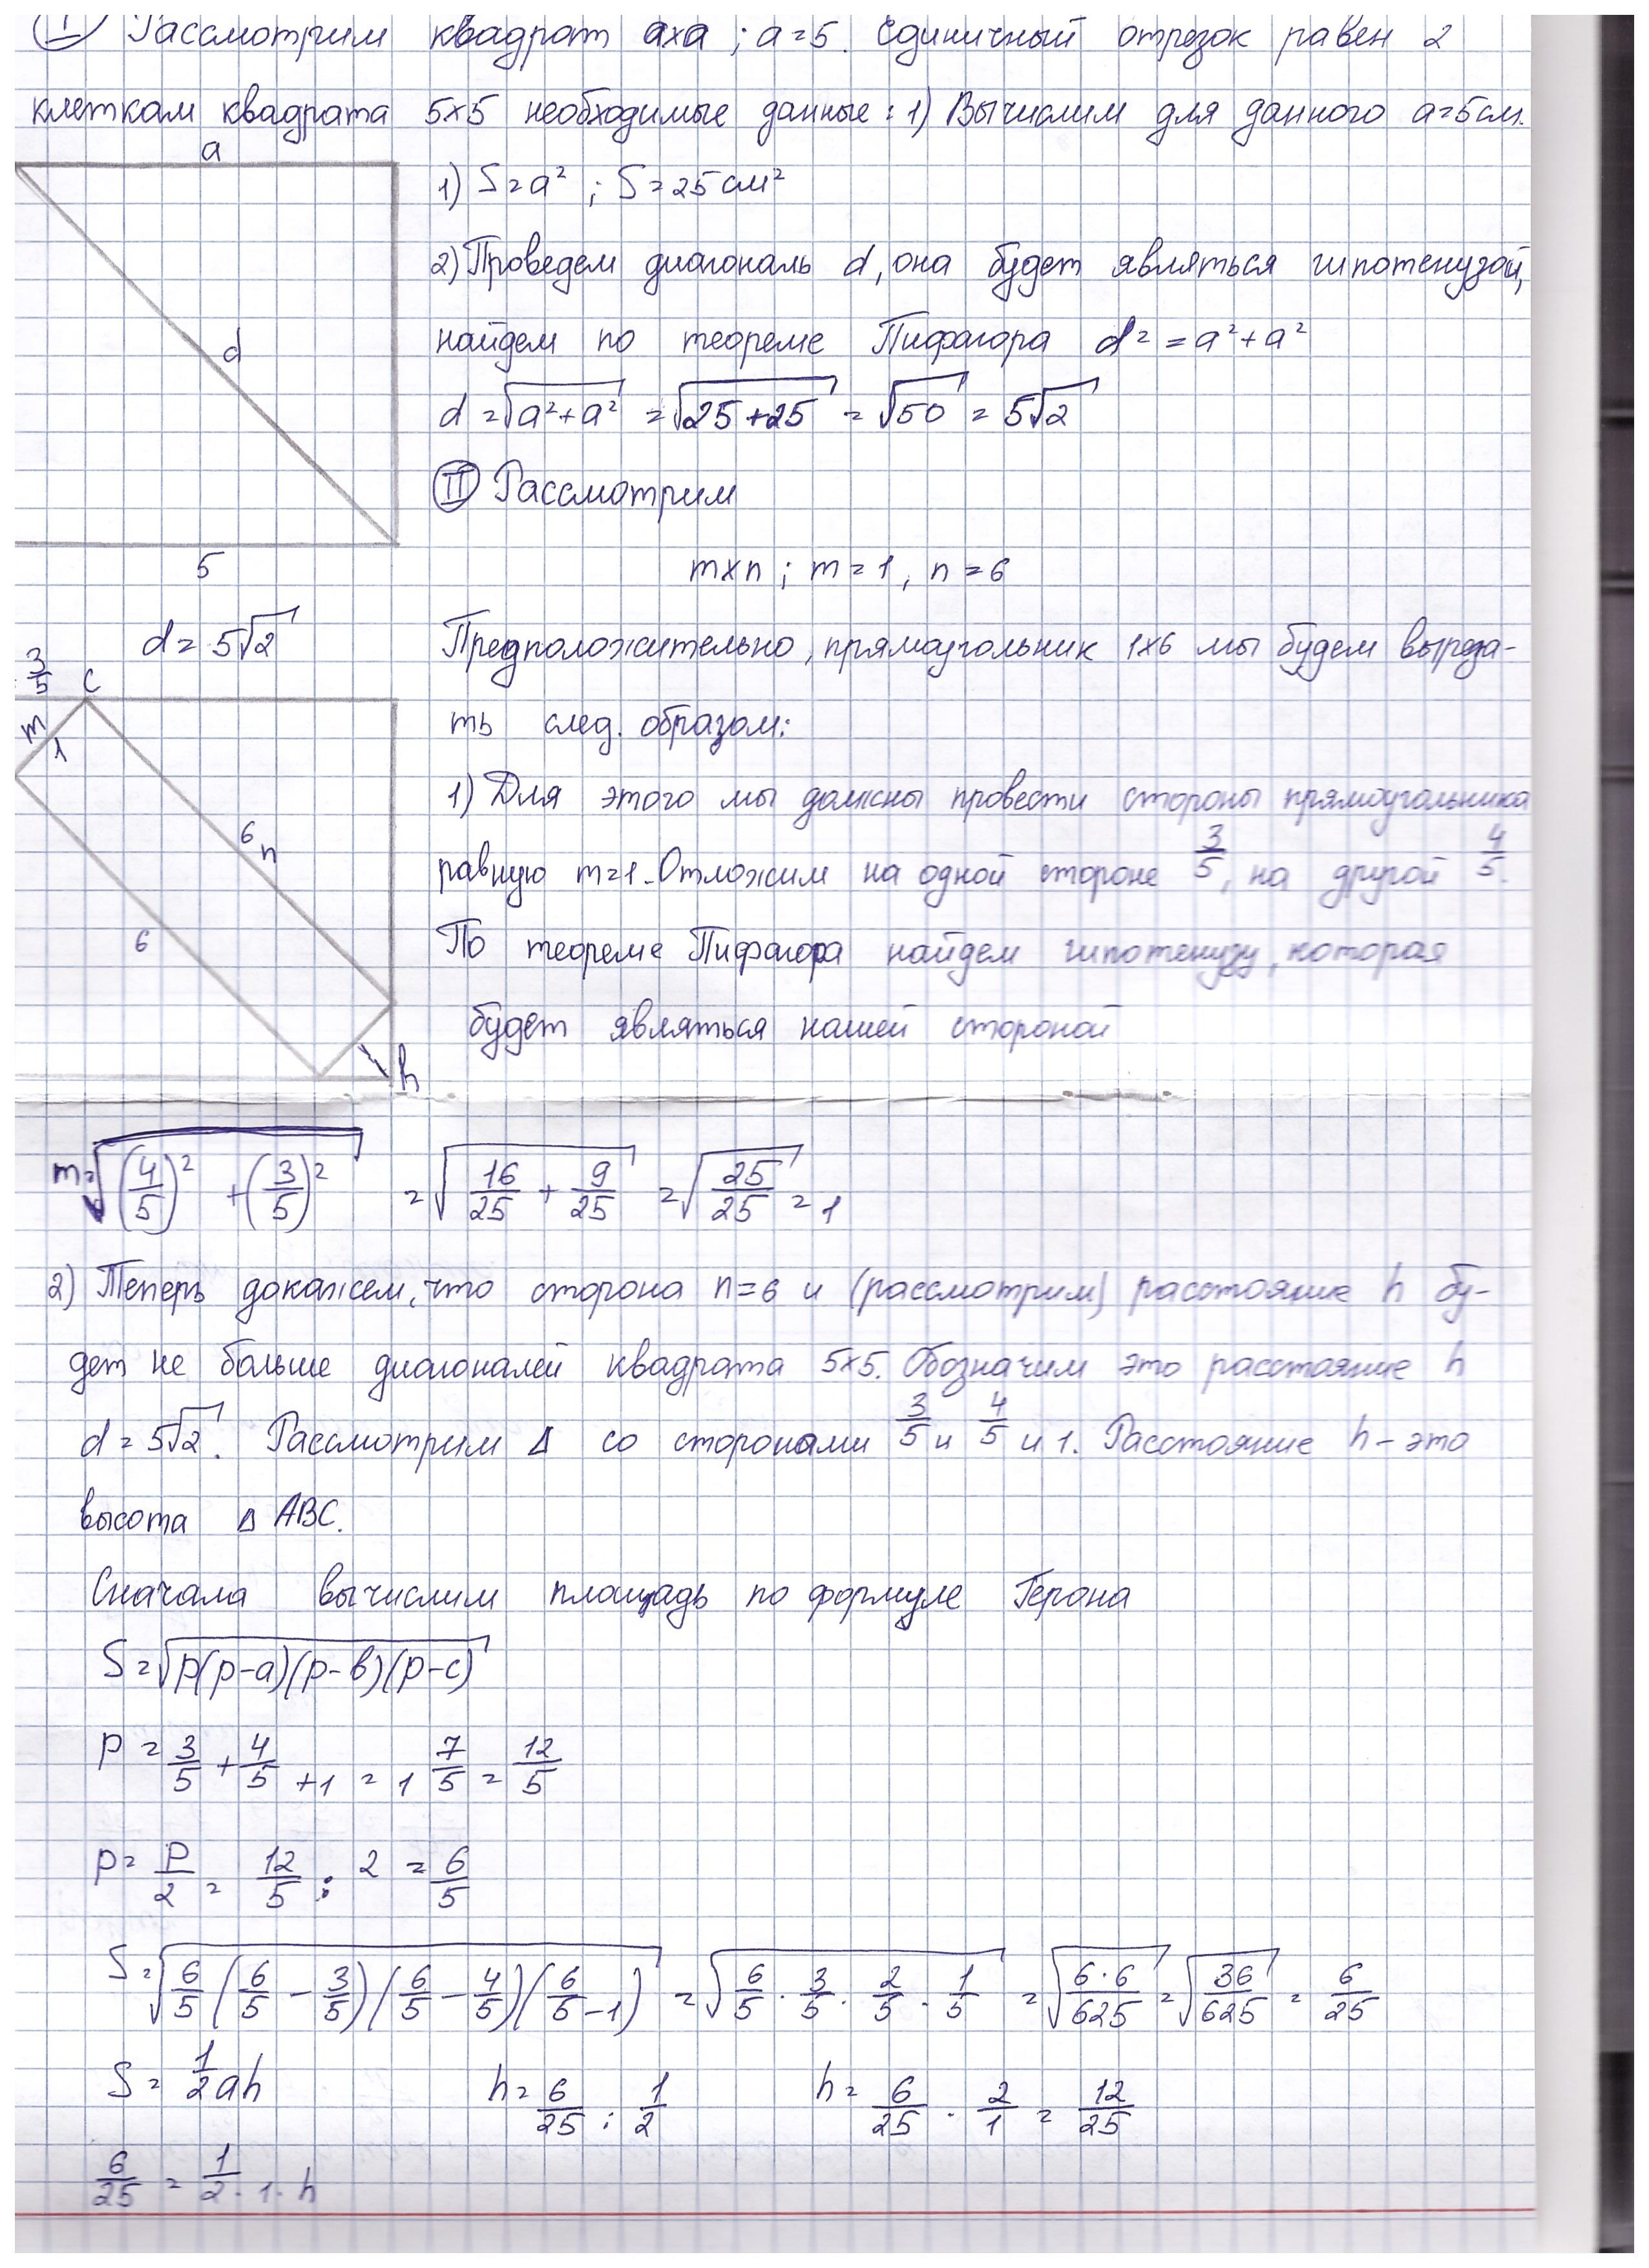 I Рассмотрим квадрат axa ; a=5. Единичный отрезок равен 2
клеткам квадрата 5x5 необходимые данные: 1) Вычислим для данного a=5см.
a
1) S=a² ; S=25см²
2) Проведем диагональ d, она будет являться гипотенузой,
d
найдем по теореме Пифагора d² = a²+a²
d = √(a²+a²) = √(25+25) = √50 = 5√2
II Рассмотрим
5
mxn ; m=1, n=6
d = 5√2
Предположительно, прямоугольник 1x6 мы будем выреза-
3/5 C
m
1
ть след. образом:
1) Для этого мы должны провести стороны прямоугольника
6
n
равную m=1. Отложим на одной стороне 3/5, на другой 4/5.
6
По теореме Пифагора найдем гипотенузу, которая
будет являться нашей стороной
h
m=√((4/5)² + (3/5)²) = √(16/25 + 9/25) = √(25/25) = 1
2) Теперь докажем, что сторона n=6 и (рассмотрим) расстояние h бу-
дет не больше диагоналей квадрата 5x5. Обозначим это расстояние h
d = 5√2. Рассмотрим Δ со сторонами 3/5 и 4/5 и 1. Расстояние h - это
высота Δ ABC.
Сначала вычислим площадь по формуле Герона
S=√(p(p-a)(p-в)(p-c))
P = 3/5 + 4/5 +1 = 1 7/5 = 12/5
p= P/2 = 12/5 : 2 = 6/5
S=√(6/5 (6/5 - 3/5)(6/5 - 4/5)(6/5 -1)) = √(6/5 · 3/5 · 2/5 · 1/5) = √(6·6/625) = √(36/625) = 6/25
S = 1/2 ah h= 6/25 : 1/2 h= 6/25 · 2/1 = 12/25
6/25 = 1/2 · 1 · h